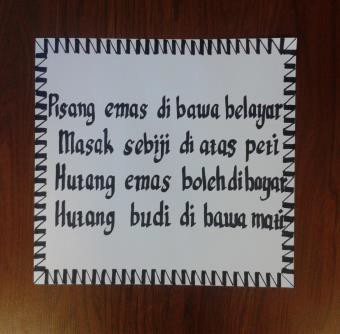 Pisang emas di bawa belayar
Masak sebiji di atas peti
Hutang emas boleh di bayar
Hutang budi di bawa mati